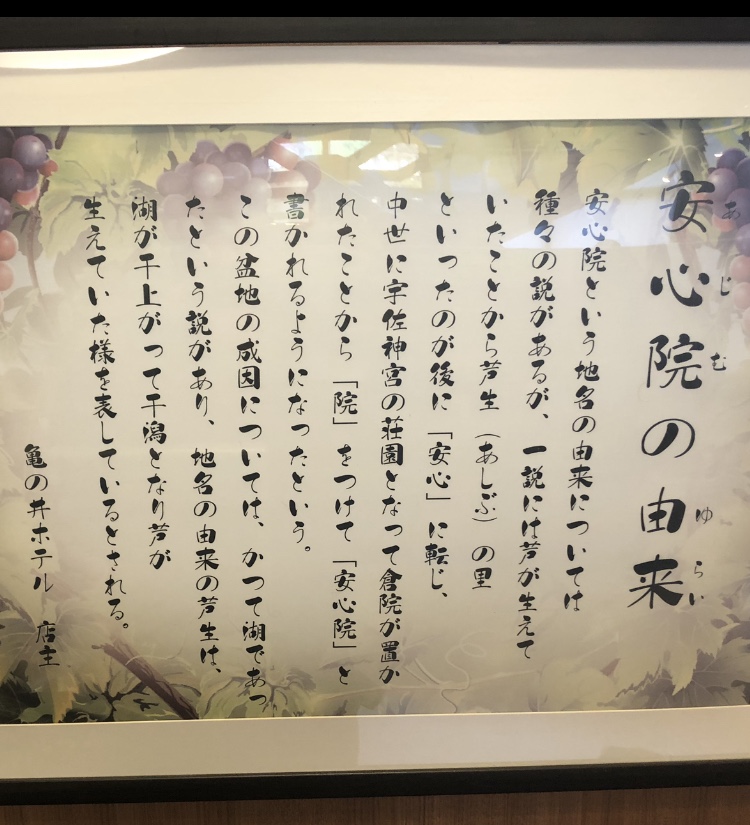 安心院の由来
あじむ
ゆらい
安心院という地名の由来については
種々の説があるが、一説には芦が生えて
いたことから芦生（あしぶ）の里
といったのが後に「安心」に転じ、
中世に宇佐神宮の荘園となって倉院が置か
れたことから「院」をつけて「安心院」と
書かれるようになったという。
この盆地の成因については、かつて湖であっ
たという説があり、地名の由来の芦生は、
湖が干上がって干潟となり芦が
生えていた様を表しているとされる。
亀の井ホテル　店主